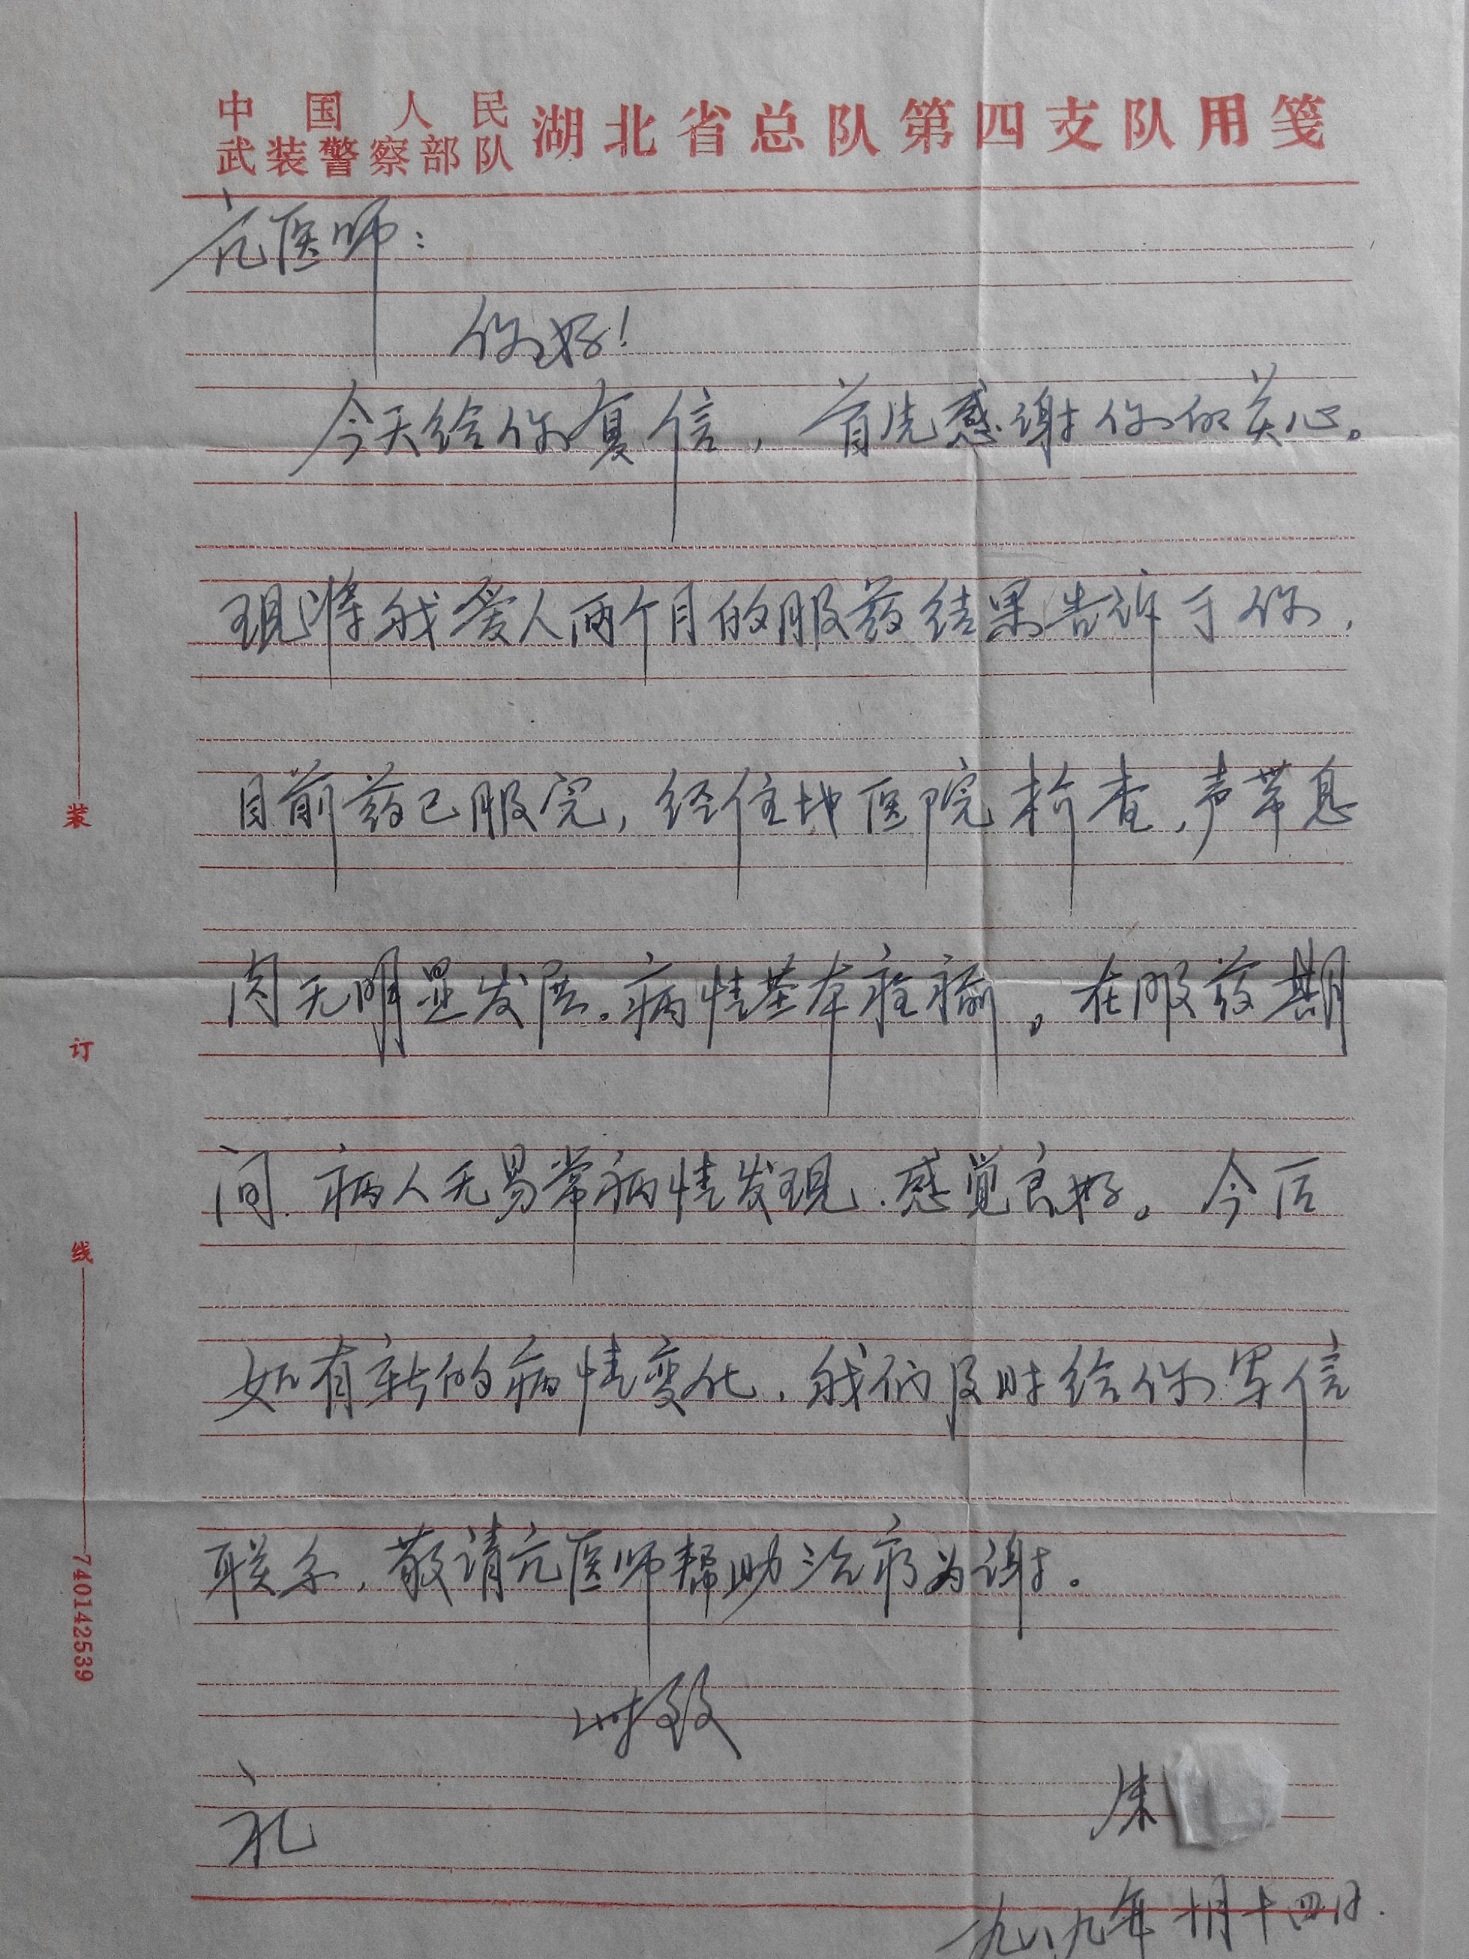 中国人民
武装警察部队 湖北省总队第四支队用笺
亢医师：
你好！
今天给你复信，首先感谢你的关心。
现将我爱人两个月的服药结果告诉于你，
目前药已服完，经住地医院检查，声带息
肉无明显发展。病情基本稳
。在服药期
间、病人无易常病情发现、感觉良好。今后
如有新的病情变化，我们及时给你写信
联系，敬请亢医师帮助治疗为谢。
此致
礼
朱
一九八九年十月十四日.
装
订
线
740142539